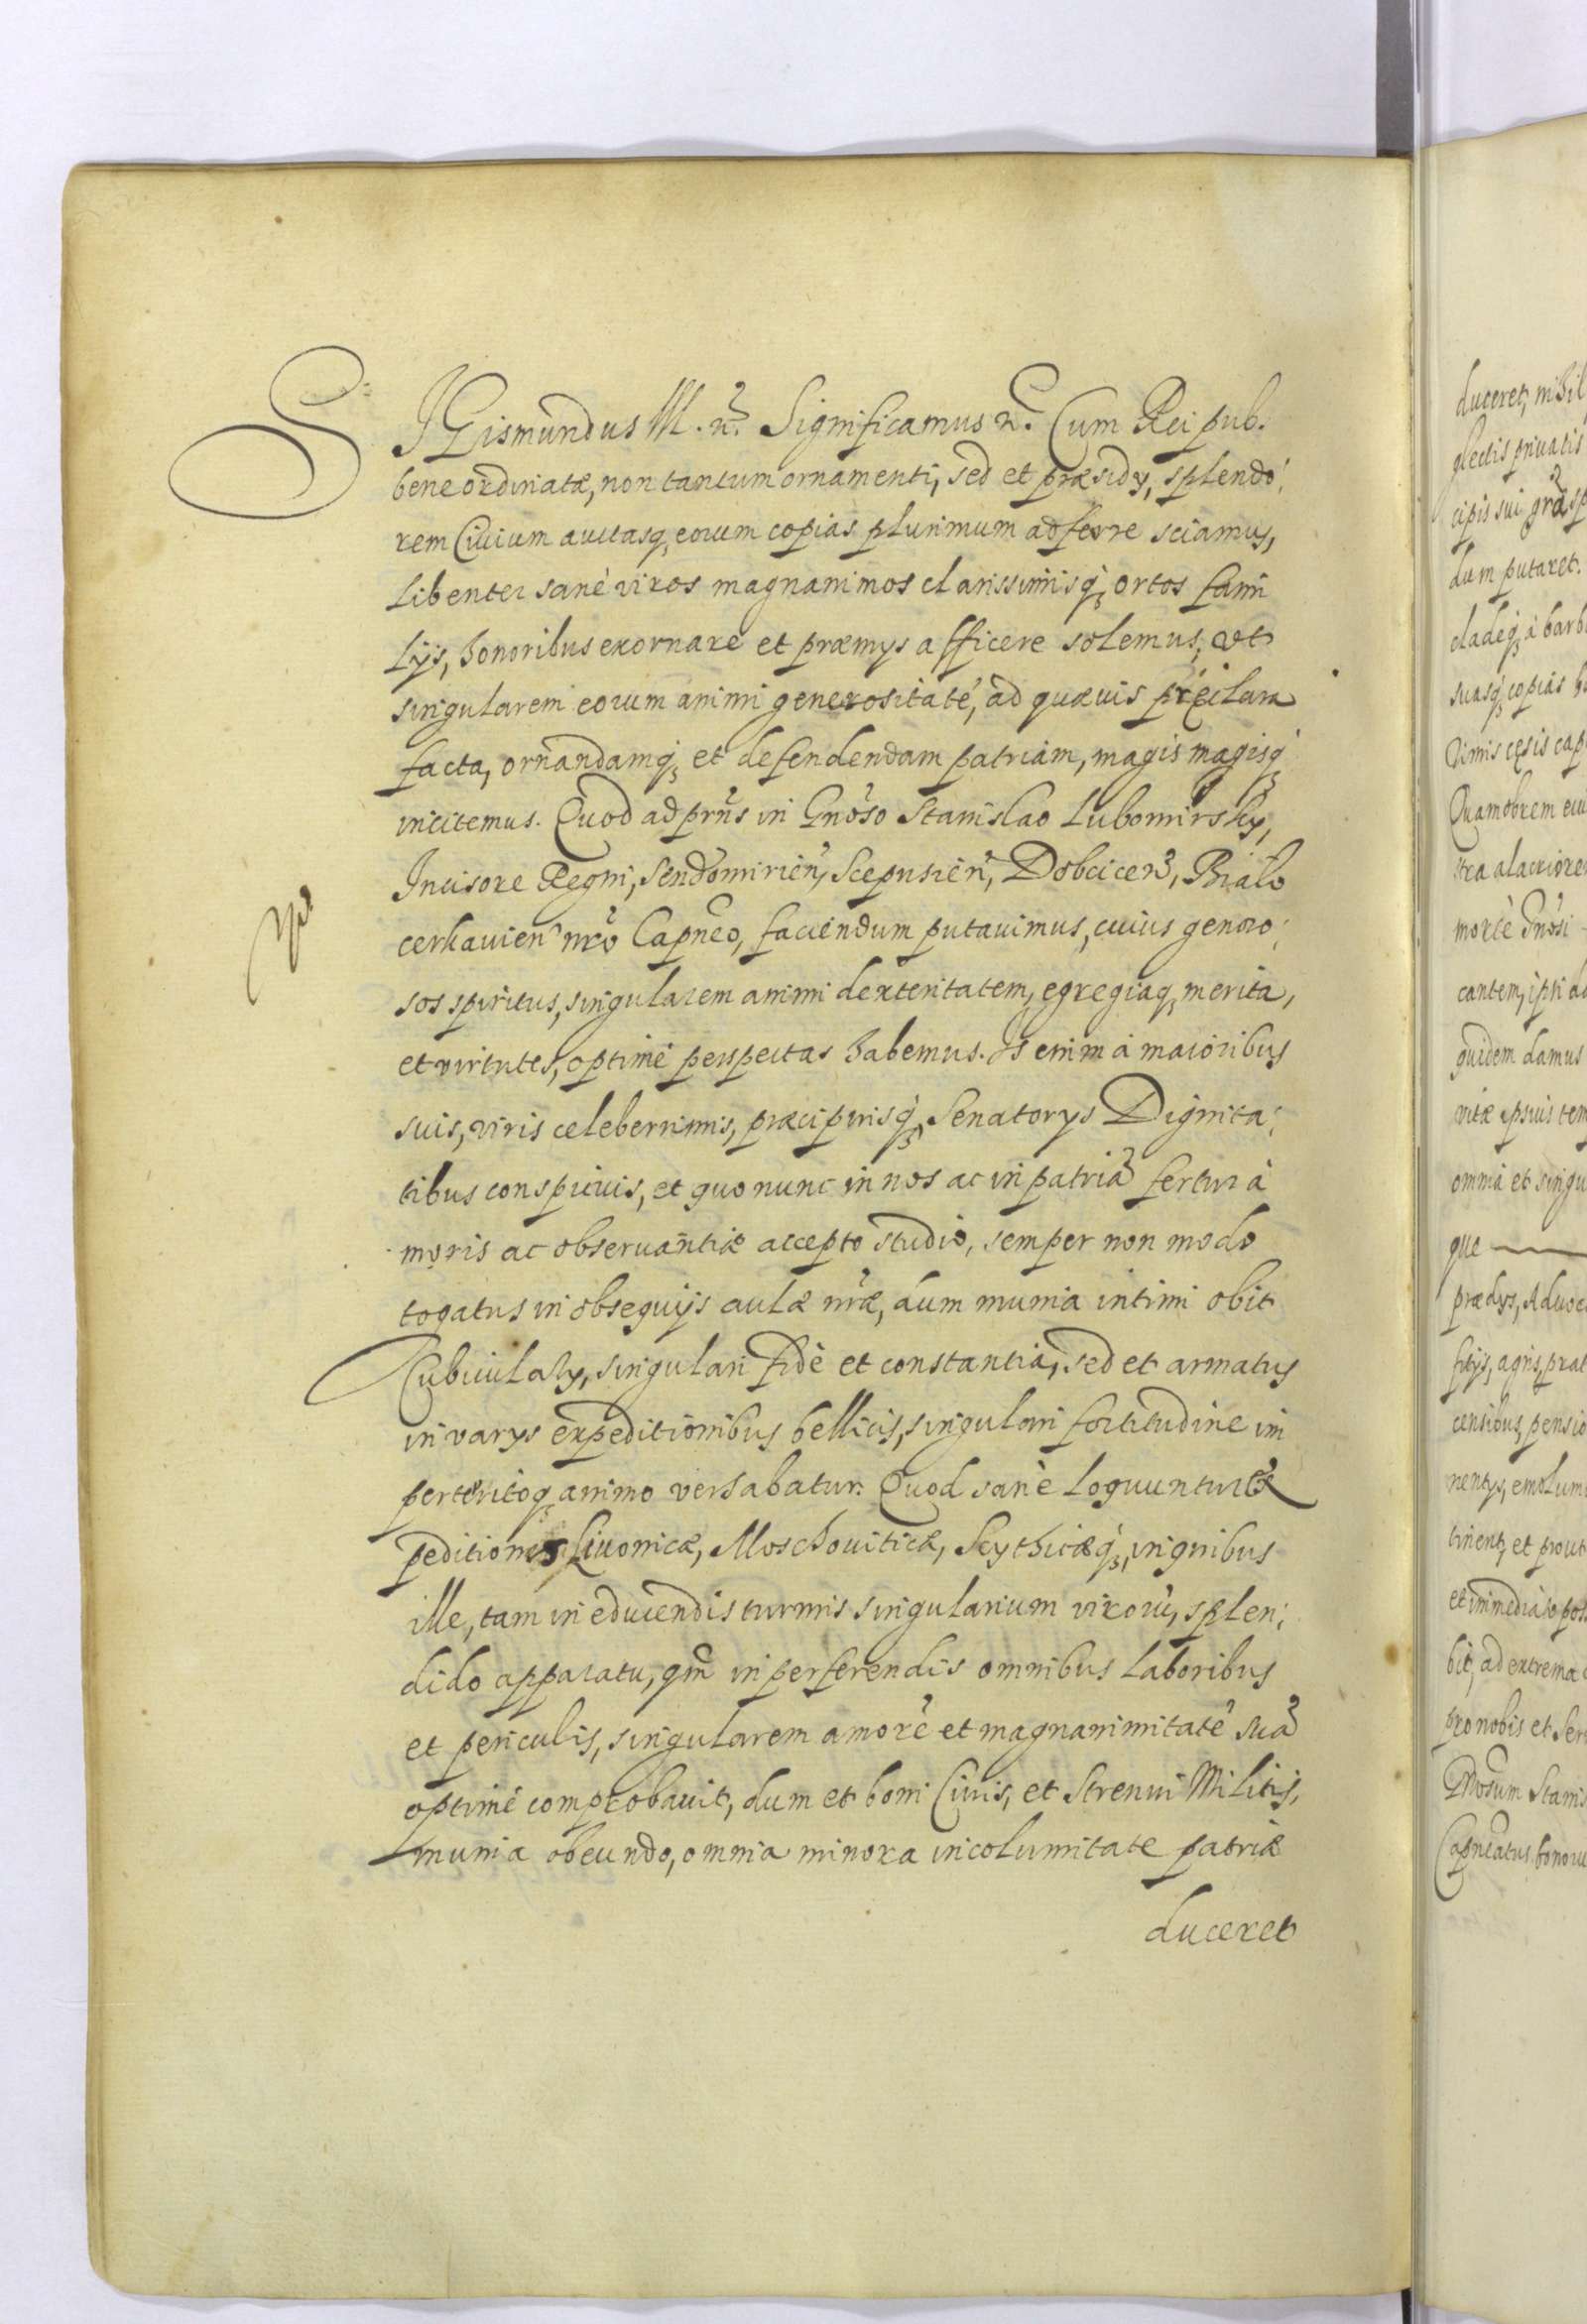 SIGismundus III. etc. Significamus etc. Cum Rei pub.
bene ordinatæ, non tantum ornamenti, sed et præsidy, splendo:
rem Ciuium auctasq; eorum copias plurimum adferre sciamus,
Libenter sanè viros magnanimos clarissimisq; ortos fami
lijs, honoribus exornare et præmys afficere solemus, vt
singularem eorum animi generositatē, ad quæuis præclara
facta, ornandamq; et defendendam patriam, magis magisq;
incitemus. Quod ad prn̄s in Gnōso Stanislao Lubomirsky,
Incisore Regni, Sendomirien̄, Scepusien̄, Dobcicen̄, Biało
cerkauien̄ nr̄o Capn̄eo, faciendum putauimus, cuius genero:
sos spiritus, singularem animi dexteritatem, egregiaq; merita,
et virtutes, optimè perspectas habemus. Is enim à maioribus
suis, viris celeberrimis, præcipuisq; Senatorys Dignita:
tibus conspicuis, et quo nunc in nos ac in patriā fertur a
moris ac obseruantiæ accepto studio, semper non modo
togatus in obsequijs aulæ nr̄æ, dum munia intimi obit
Cubicularÿ, singulari fidè et constantia, sed et armatus
in varys expeditionibus bellicis, singulari fortitudine im
perteritoq; animo versabatur. Quod sanè loquuntur ex
peditiones Liuonicæ, Moschouiticæ, Scythicæq;, in quibus
ille, tam in educendis turmis singularium virorū, splen:
dido apparatu, qm̄ in perferendis omnibus laboribus
et periculis, singularem amorē et magnanimitatē suā
optimè comprobauit, dum et boni Ciuis, et Strenui Militis,
munia obeundo, omnia minora incolumitate patriæ
duceret
duceret, nihil
glectis priuatis
cipis sui grā sp
dum putaret.
cladeq; à barb
suasq; copias
Quamobrem
morte Gnōsi
cantem, ipsi ad
quidem damus
vitæ ipsius tem
omnia et singu
que
prædys, Aduoc
agris, prat
censibus, pensio
nentys, emolum
tinent, et prout
et immediatè pos
bit, ad extrema
pro nobis et Ser
Gnōsum Stanis
Capn̄eatus